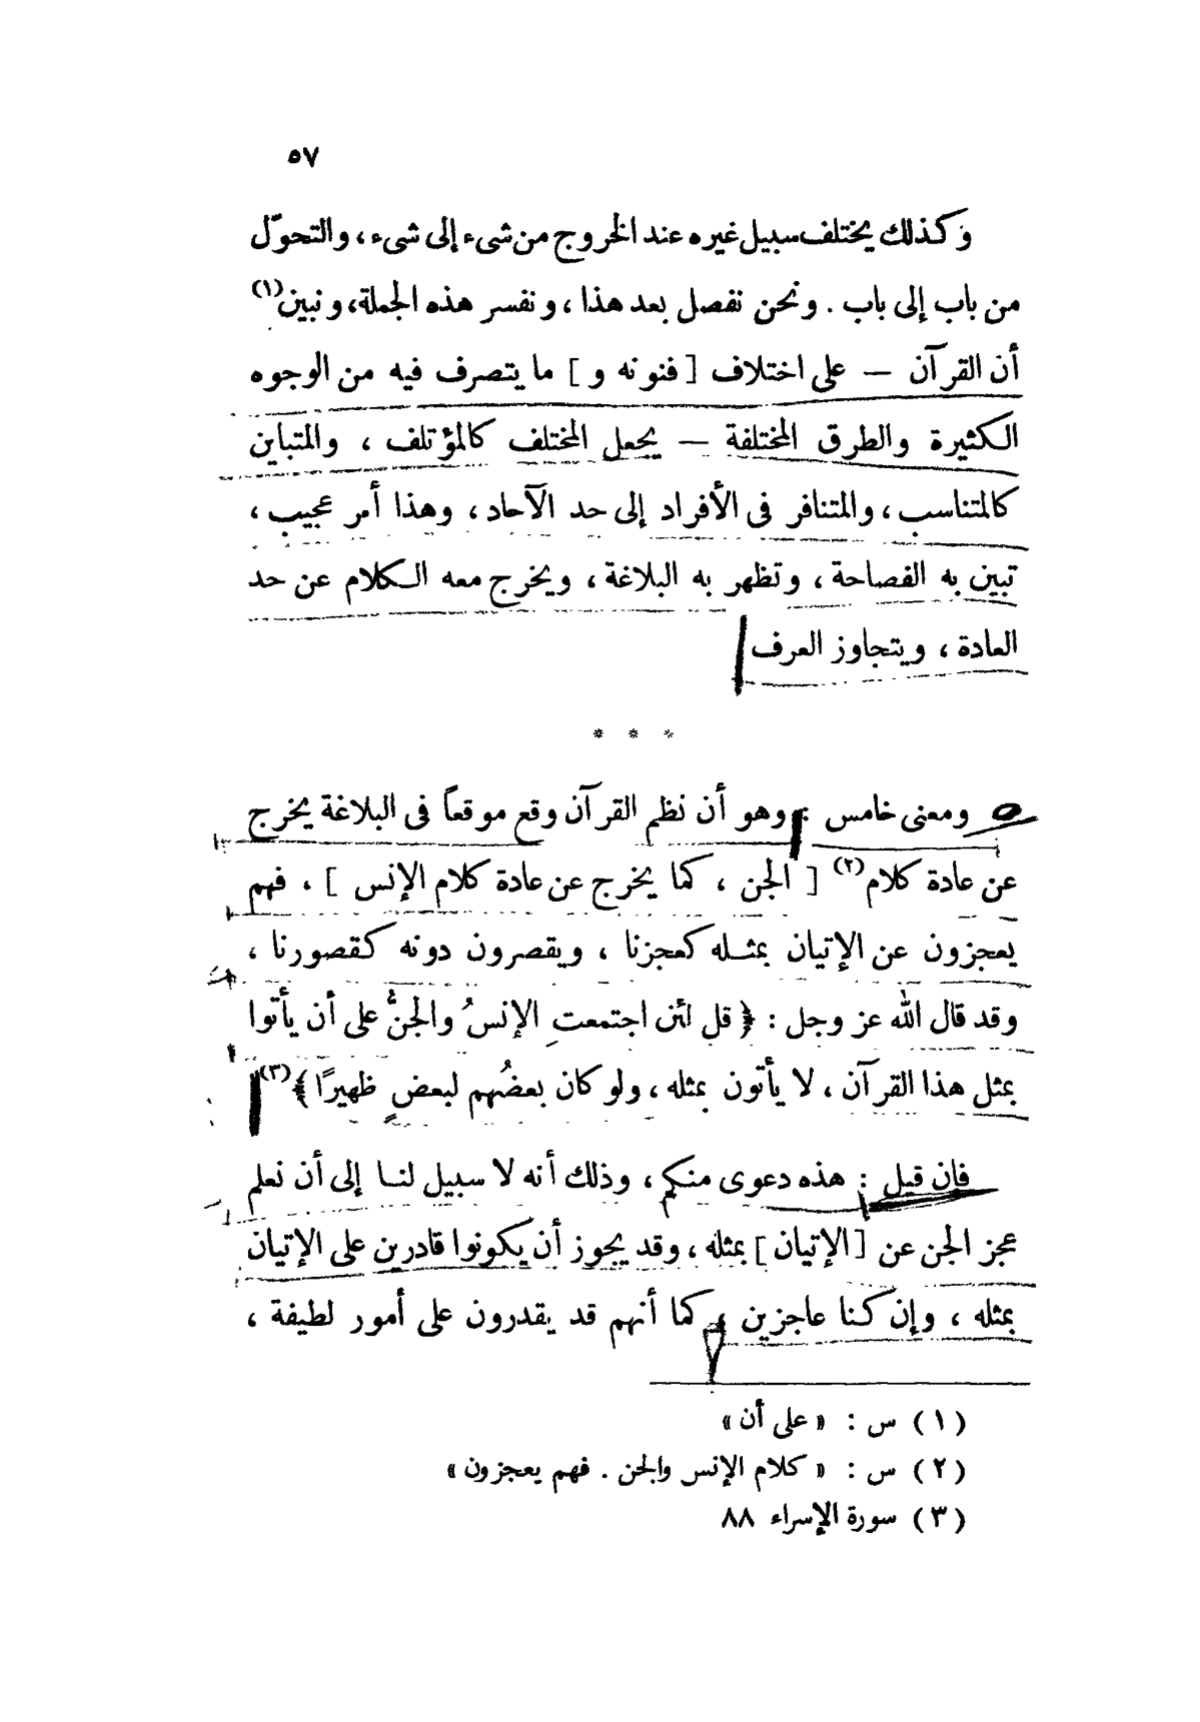 ٥٧
وكذلك يختلف سبيل غيره عند الخروج من شىء إلى شىء ، والتحوّل
من باب إلى باب . ونحن نفصل بعد هذا ، ونفسر هذه الجملة، ونبين(١)
أن القرآن — على اختلاف [ فنونه و ] ما يتصرف فيه من الوجوه
الكثيرة والطرق المختلفة — يجعل المختلف كالمؤتلف ، والمتباين
كالمتناسب ، والمتنافر فى الأفراد إلى حد الآحاد ، وهذا أمر عجيب ،
تبين به الفصاحة ، وتظهر به البلاغة ، ويخرج معه الكلام عن حد
العادة ، ويتجاوز العرف
* * *
ومعنى خامس : وهو أن نظم القرآن وقع موقعاً فى البلاغة يخرج
عن عادة كلام(٢) [ الجن ، كما يخرج عن عادة كلام الإنس ] . فهم
يعجزون عن الإتيان بمثله كعجزنا ، ويقصرون دونه كقصورنا ،
وقد قال الله عز وجل : ﴿ قل لئن اجتمعتِ الإنسُ والجنُّ على أن يأتوا
بمثل هذا القرآن ، لا يأتون بمثله ، ولو كان بعضُهم لبعضٍ ظهيرًا ﴾(٣)
فإن قيل : هذه دعوى منكم ، وذلك أنه لا سبيل لنا إلى أن نعلم
عجز الجن عن [ الإتيان ] بمثله ، وقد يجوز أن يكونوا قادرين على الإتيان
بمثله ، وإن كنا عاجزين ، كما أنهم قد يقدرون على أمور لطيفة ،
(١) س : « على أن »
(٢) س : « كلام الإنس والجن . فهم يعجزون »
(٣) سورة الإسراء ٨٨